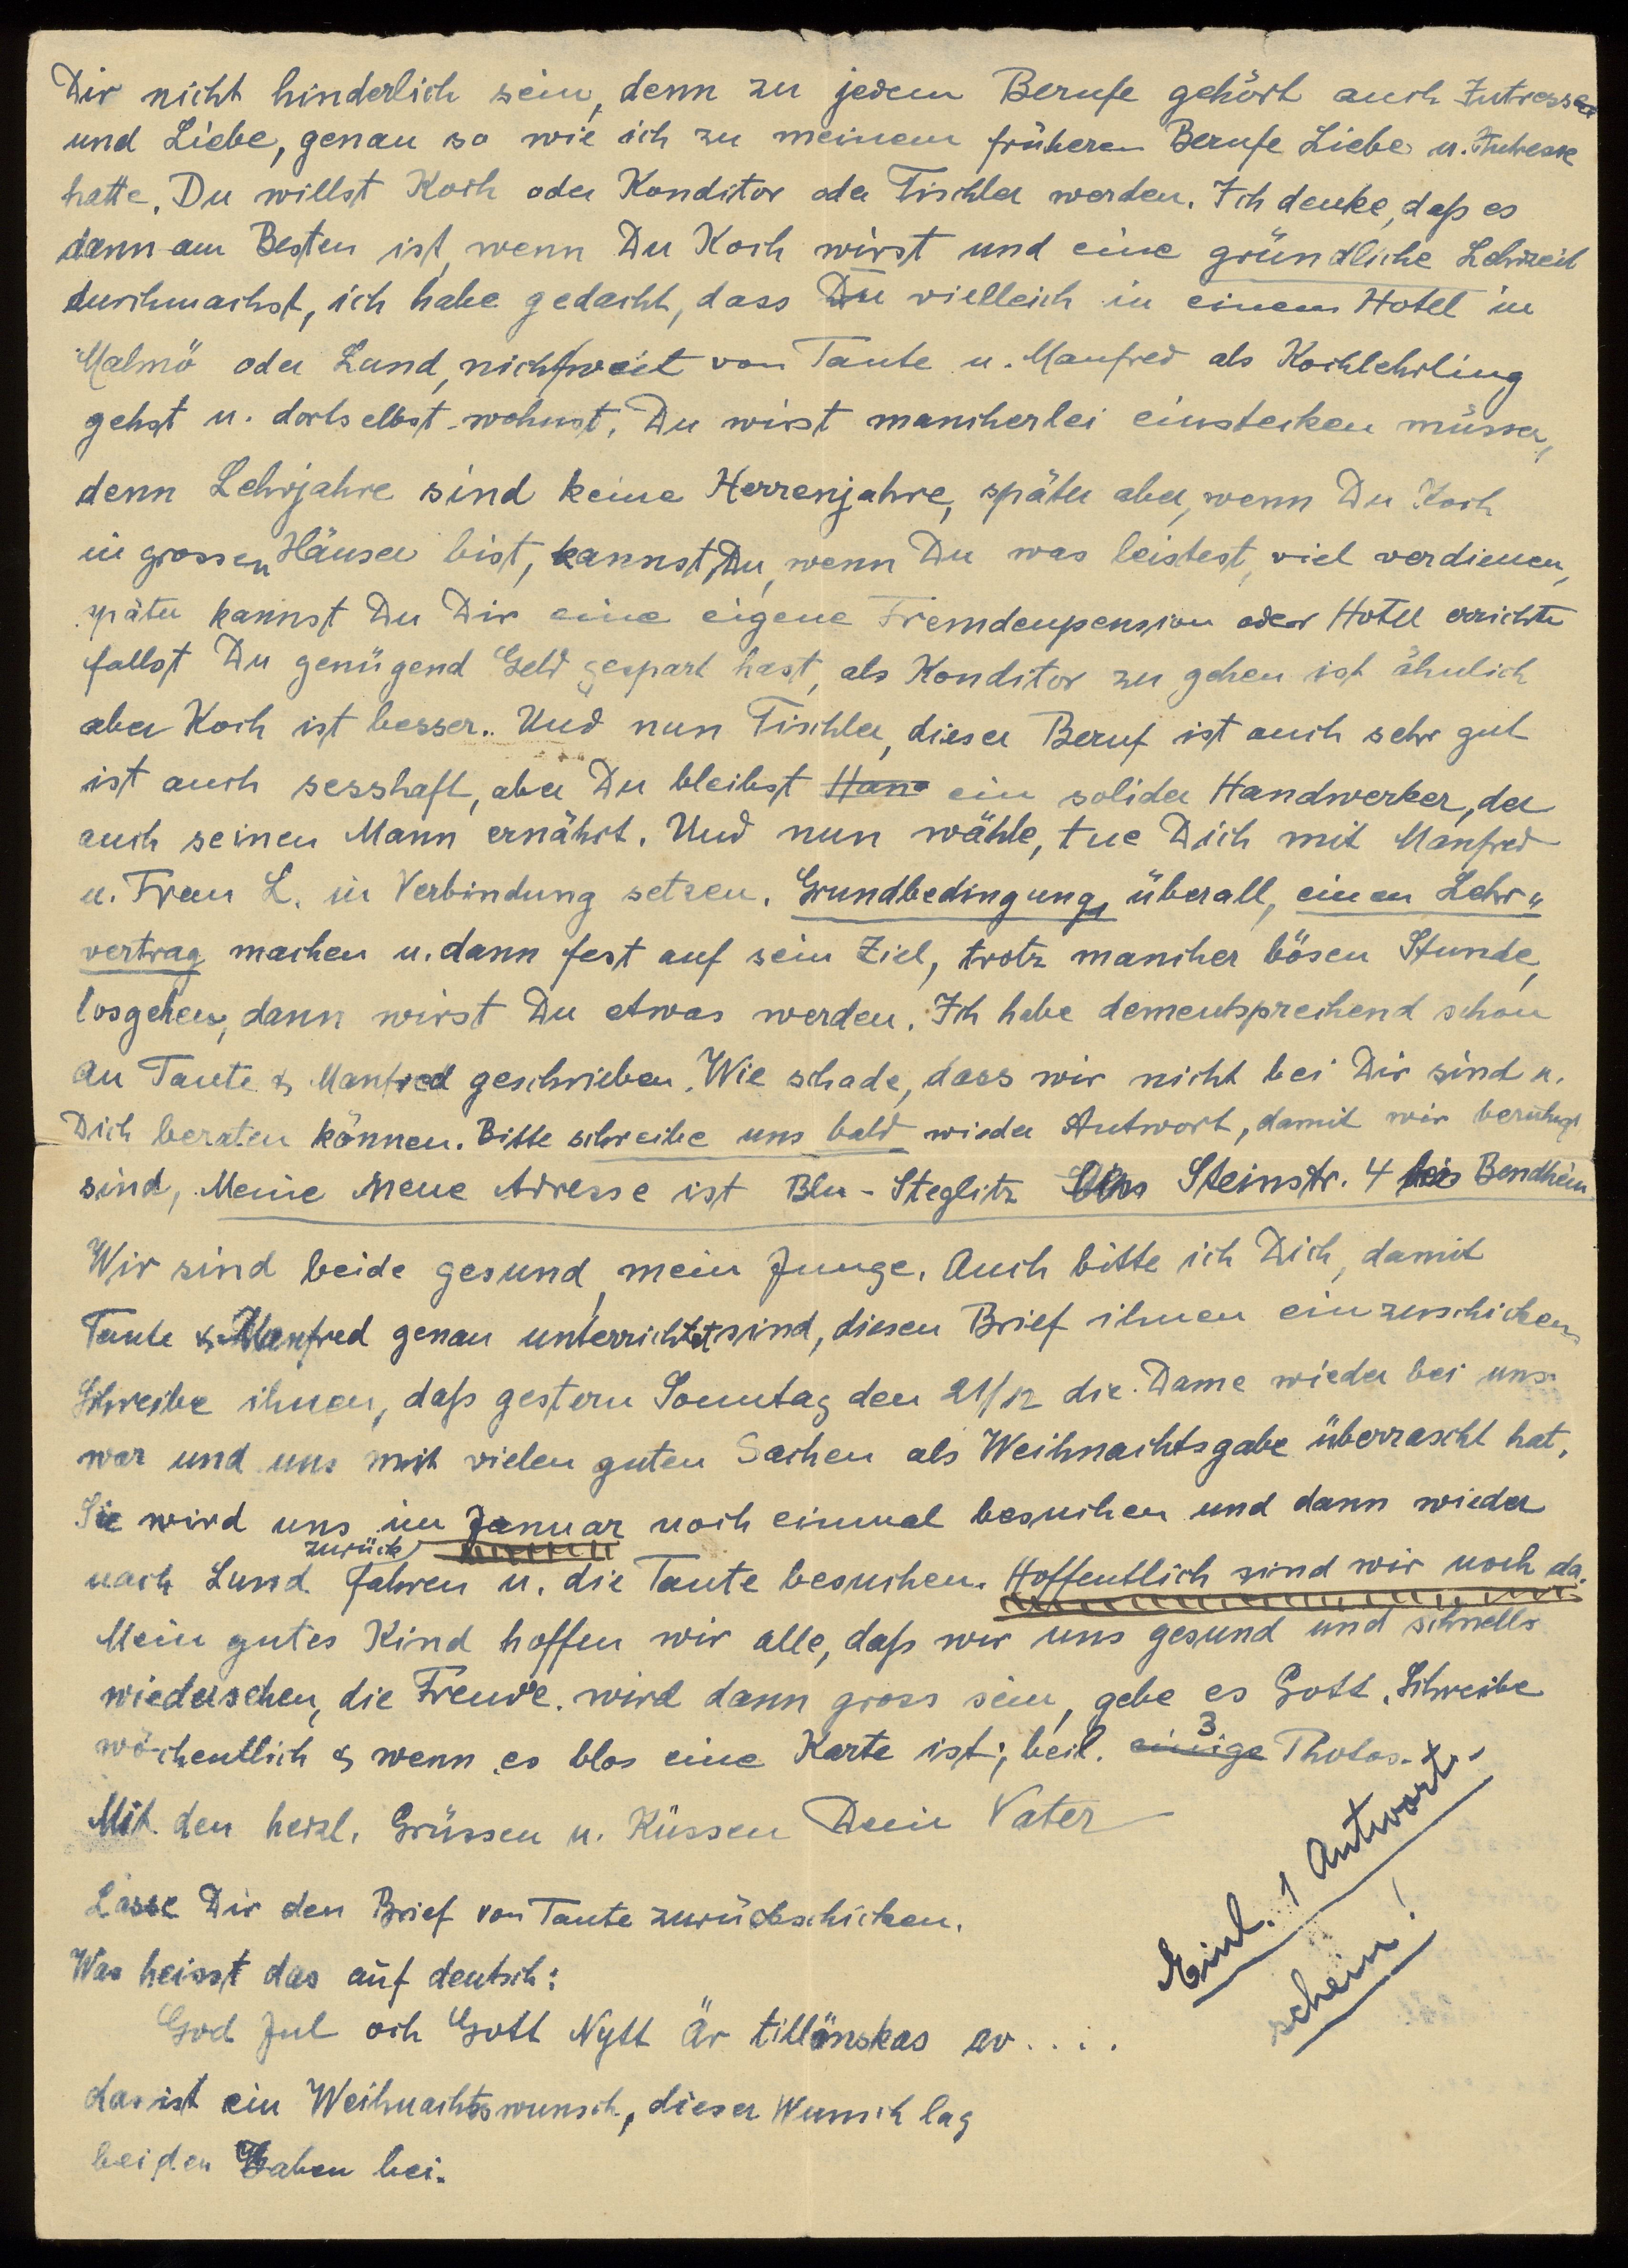 Dir nicht hinderlich sein, denn zu jedem Berufe gehört auch Intresse
und Liebe, genau so wie ich zu meinem früheren Berufe Liebe u. Intresse
hatte. Du willst Koch oder Konditor oder Tischler werden. Ich denke, daß es
dann am Besten ist, wenn Du Koch wirst und eine gründliche Lehrzeit
durchmachst, ich habe gedacht, dass Du vielleich in einem Hotel in
Malmö oder Lund, nicht weit von Tante u. Manfred als Kochlehrling
gehst u. dortselbst wohnst. Du wirst mancherlei einstecken müssen,
denn Lehrjahre sind keine Herrenjahre, später aber, wenn Du Koch
in grossen Häuser bist, kannst Du, wenn Du was leistest, viel verdienen,
später kannst Du Dir eine eigene Fremdenpension oder Hotel errichten
fallst Du genügend Geld gespart hast, als Konditor zu gehen ist ähnlich
aber Koch ist besser. Und nun Tischler, dieser Beruf ist auch sehr gut
ist auch sesshaft, aber Du bleibst Han ein solider Handwerker, der
auch seinen Mann ernährt. Und nun wähle, tue Dich mit Manfred
u. Frau L. in Verbindung setzen. Grundbedingung, überall, einen Lehr-
vertrag machen u. dann fest auf sein Ziel, trotz mancher bösen Stunde,
losgehen, dann wirst Du etwas werden. Ich habe dementsprechend schon
an Tante & Manfred geschrieben. Wie schade, dass wir nicht bei Dir sind u.
Dich beraten können. Bitte schreibe uns bald wieder Antwort, damit wir beruhigt
sind, Meine neue Adresse ist Bln - Steglitz Steinstr. 4 bei Bendheim
Wir sind beide gesund, mein Junge. Auch bitte ich Dich, damit
Tante & Manfred genau unterrichtet sind, diesen Brief ihnen einzuschicken.
Schreibe ihnen, daß gestern Sonntag den 21/12 die Dame wieder bei uns
war und uns mit vielen guten Sachen als Weihnachtsgabe überrascht hat.
Sie wird uns im Januar noch einmal besuchen und dann wieder
nach Lund zurück fahren u. die Tante besuchen. Hoffentlich sind wir noch da.
Mein gutes Kind hoffen wir alle, daß wir uns gesund und schnells
wiedersehen, die Freude wird dann gross sein, gebe es Gott. Schreibe
wöchentlich & wenn es blos eine Karte ist; beil. einige 3 Photos.
Mit den herzl. Grüssen u. Küssen Dein Vater
Einl. 1 Antwort-
schein!
Lasse Dir den Brief von Tante zurückschicken.
Was heisst das auf deutsch:
God Jul och Gott Nytt År tillönskas av....
das ist ein Weihnachtswunsch, dieser Wunsch lag
bei den Gaben bei.